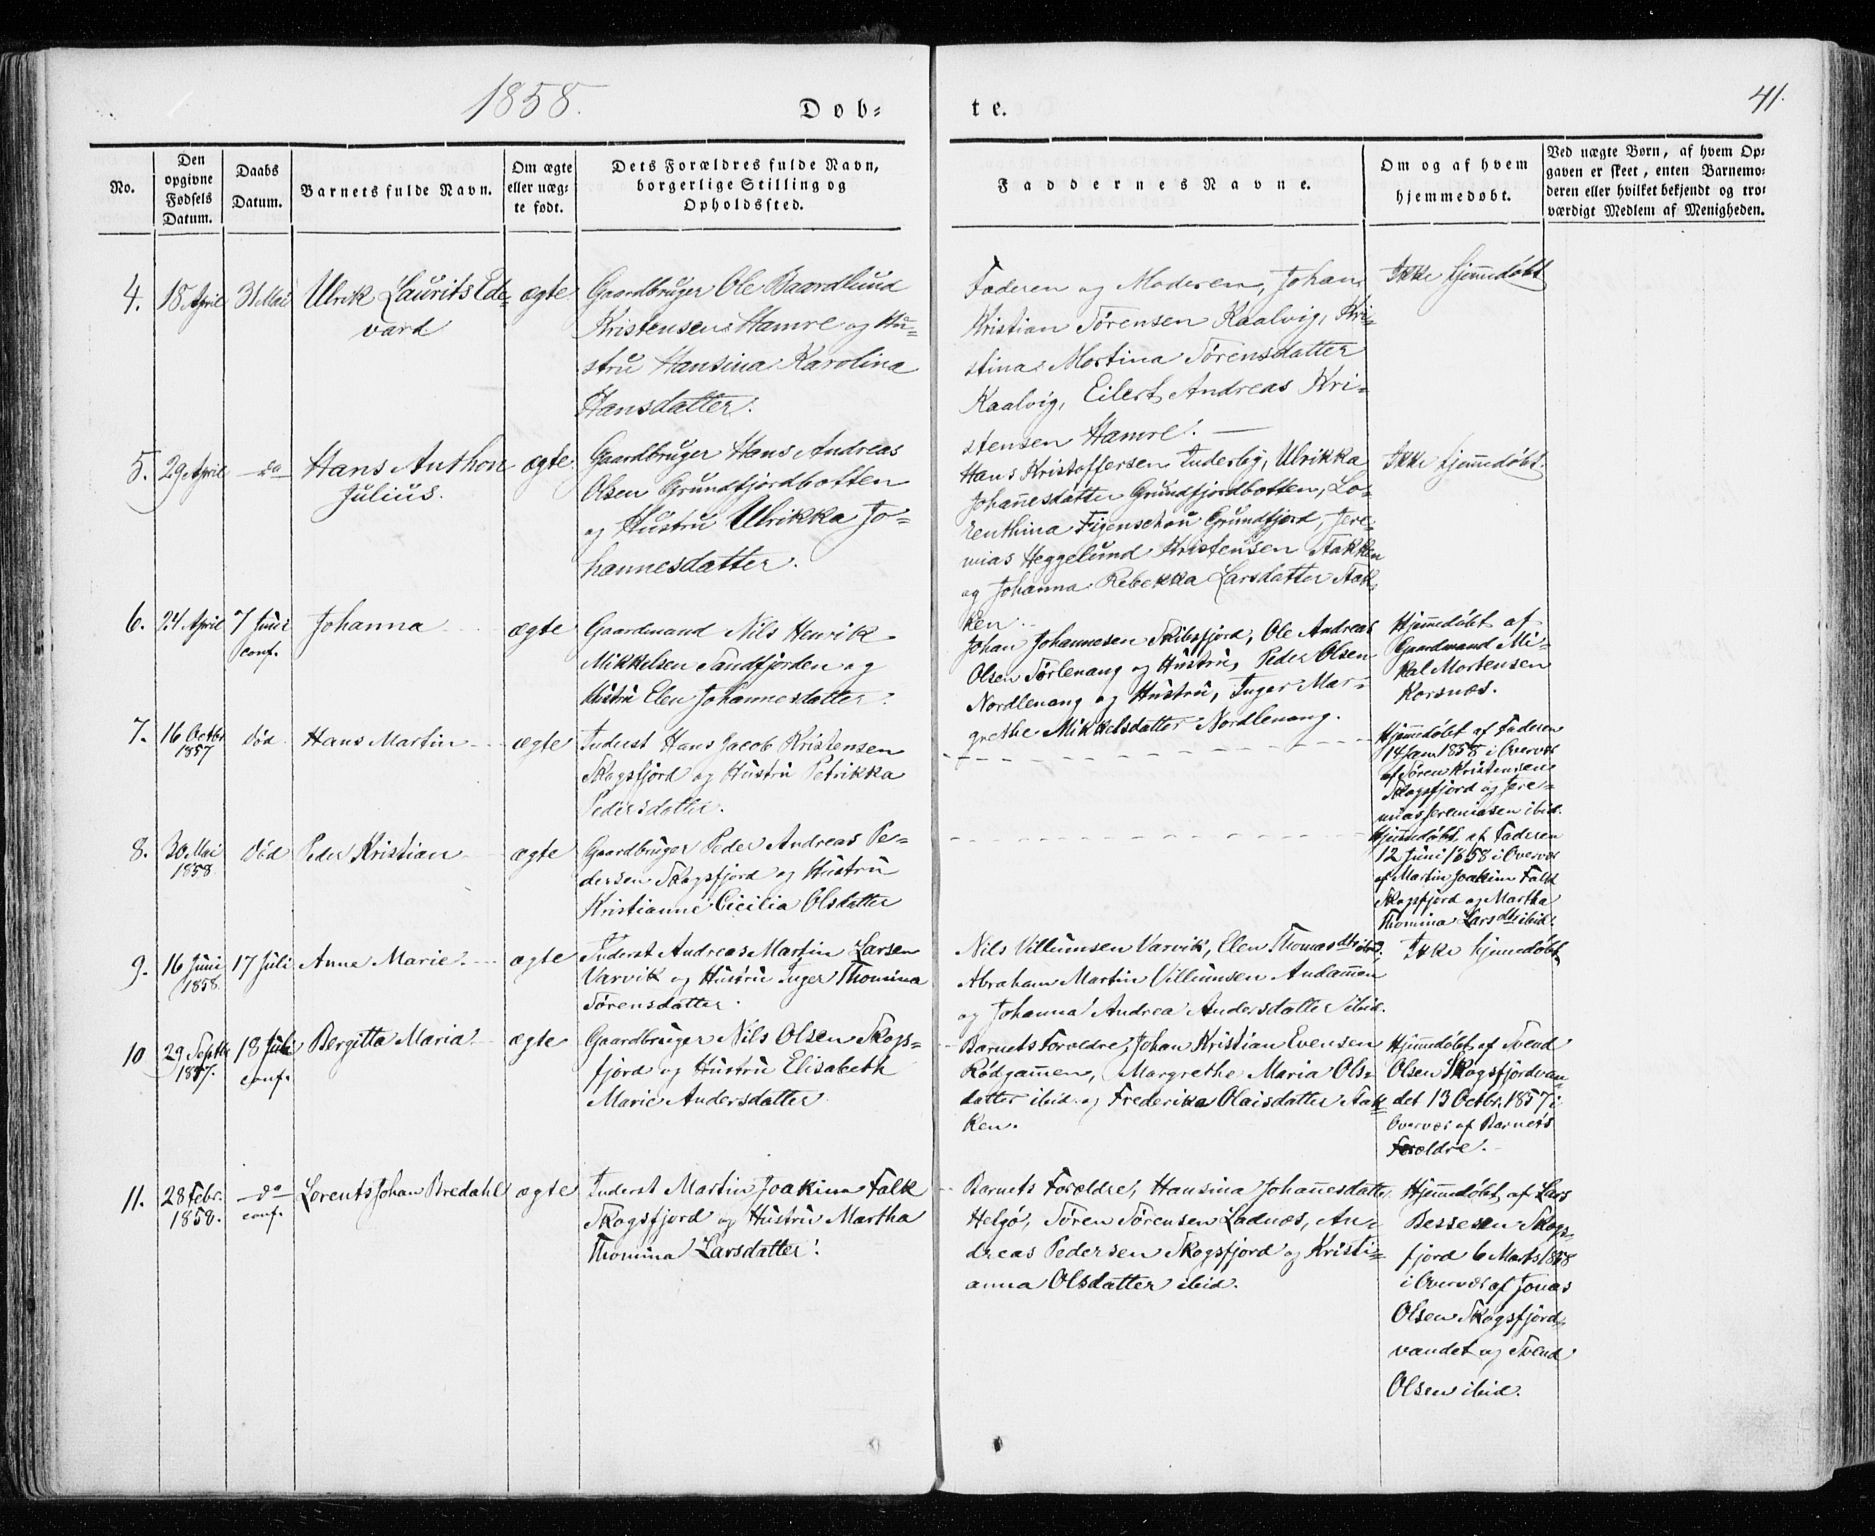 1858.
Døb-
te.
41.
No.
Den opgivne Fødsels Datum.
Daabs Datum.
Barnets fulde Navn.
Om ægte eller uæg-
te født.
Dets Forældres fulde Navn,
borgerlige Stilling og
Opholdssted.
Faddernes Navne.
Om og af hvem
hjemmedøbt.
Ved uægte Børn, af hvem Op-
gaven er skeet, enten Barnemo-
deren eller hvilket bekjendt og tro-
værdigt Medlem af Menigheden.
4. 18 April 31 Mai Ulrik Laurits Ede-
vard
ægte
Gaardbruger Ole Baardlund
Kristensen Hamre og Hu-
stru Hansina Karolina
Hansdatter.
Faderen og Moderen, Johan
Kristian Sørensen Kaalvig, Kri-
stina Mortina Sørensdatter
Kaalvig, Eilert Andreas Kri-
stensen Hamre.
Ikke hjemedøbt
5. 29 April do Hans Anthon
Julius.
ægte
Gaardbruger Hans Andreas
Olsen Grundfjordbotten
og Hustru Ulrikka Jo-
hannesdatter.
Hans Kristoffersen Inderby, Ulrikka
Johañesdatter Grundfjordbotten, Lo-
renthina Figenschou Grundfjord, Jere-
mias Heggelund Kristensen Stakken
og Johanna Rebekka Larsdatter Stak-
ken.
Ikke hjemedøbt.
6. 24 April 7 Juni
conf.
Johanna
ægte
Gaardmand Nils Henrik
Mikkelsen Sandfjorden og
Hustru Elen Johannesdatter.
Johan Johannesen Skibsfjord, Ole Andreas
Olsen Sørlenang og Hustru, Peder Olsen
Nordlenang og Hustru, Inger Mar-
grethe Mikkelsdatter Nordlenang.
Hjemedøbt af
Gaardmand Mi-
kal Mortensen
Korsnæs.
7. 16 Octbr
1857
død
Hans Martin
ægte
Inderst Hans Jacob Kristensen
Skogsfjord og Hustru Petrikka
Pedersdatter.
Hjemedøbt af Faderen
14 Jan 1858 i Overvær
af Søren Kristensen
Skogsfjord og Jere-
mias Jeremiasen ibid.
8. 30 Mai
1858
død
Peder Kristian
ægte
Gaardbruger Peder Andreas Pe-
dersen Skogsfjord og Hustru
Kristianne Cicilia Olsdatter
Hjemedøbt af Faderen
12 Juni 1858 i Overvær
af Martin Joakim Falk
Skogsfjord og Martha
Thomina Larsdtr ibid.
9. 16 Juni
1858.
17 Juli
Anne Marie
ægte
Inderst Andreas Martin Larsen
Varvik og Hustru Inger Thomina
Sørensdatter.
Nils Villumsen Varvik, Elen Thomasdtr ibid.
Abraham Martin Villumsen Andamen
og Johanna Andrea Andersdatter ibid.
Ikke hjemedøbt
10 29 Septbr
1857.
18 Juli
conf.
Bergitta Maria
ægte
Gaardbruger Nils Olsen Skogs-
fjord og Hustru Elisabeth
Marie Andersdatter
Barnets Forældre, Johan Kristian Evensen
Rødgamen, Margrethe Maria Ols-
datter ibid. og Frederika Olaisdatter Stak-
ken.
Hjemedøbt af Svend
Olsen Skogsfjordvan-
det 13 Octbr. 1857 i
Overvær af Barnets
Forældre.
11. 28 Febr.
1858.
do
conf.
Lorents Johan Bredahl
ægte
Inderst Martin Joakim Falk
Skogsfjord og Hustru Martha
Thomina Larsdatter.
Barnets Forældre, Hansina Johañesdatter
Helgø, Søren Sørensen Ladnæs, An-
dreas Pedersen Skogsfjord og Kristi-
anna Olsdatter ibid.
Hjemedøbt af Lars
Bessesen Skogs-
fjord 6 Marts 1858
i Overvær af Jonas
Olsen Skogsfjord-
vandet og Svend
Olsen ibid.